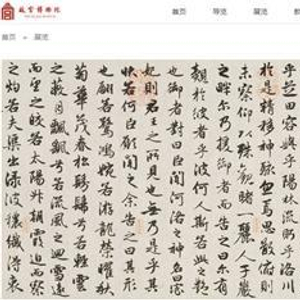 故宫博物院
首页 导览 展览
首页 - 展览
乎芝田容與乎陽林流眄乎洛川
於是精移神駭忽焉思散俯則
未察仰以殊觀睹一麗人于巖
之畔尔乃援御者而告之曰尔有
覿於彼者乎彼何人斯若此之艷
也御者對曰臣聞河洛之神名曰宓
妃則君王之所見也無乃是乎其
狀若何臣願聞之余告之曰其形
也翩若驚鴻婉若游龍榮耀秋
菊華茂春松髣髴兮若輕雲
之蔽月飄飖兮若流風之迴雪遠
而望之皎若太陽升朝霞迫而察
之灼若夫渠出淥波穠纖得衷